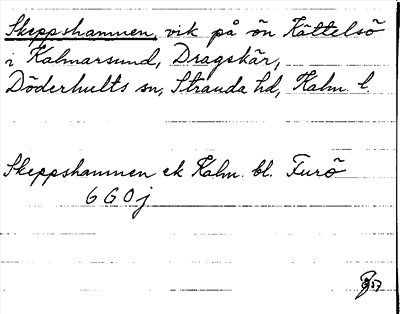 Skeppshamnen, vik på ön Kättelsö
i Kalmarsund, Dragskär,
Döderhults sn, Stranda hd, Kalm. l.
Skeppshamnen ek Kalm. bl. Furö
6 G 0 j